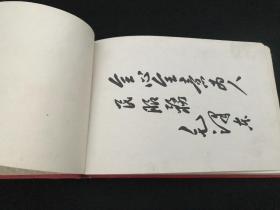 全心全意为人
民服务
毛泽东